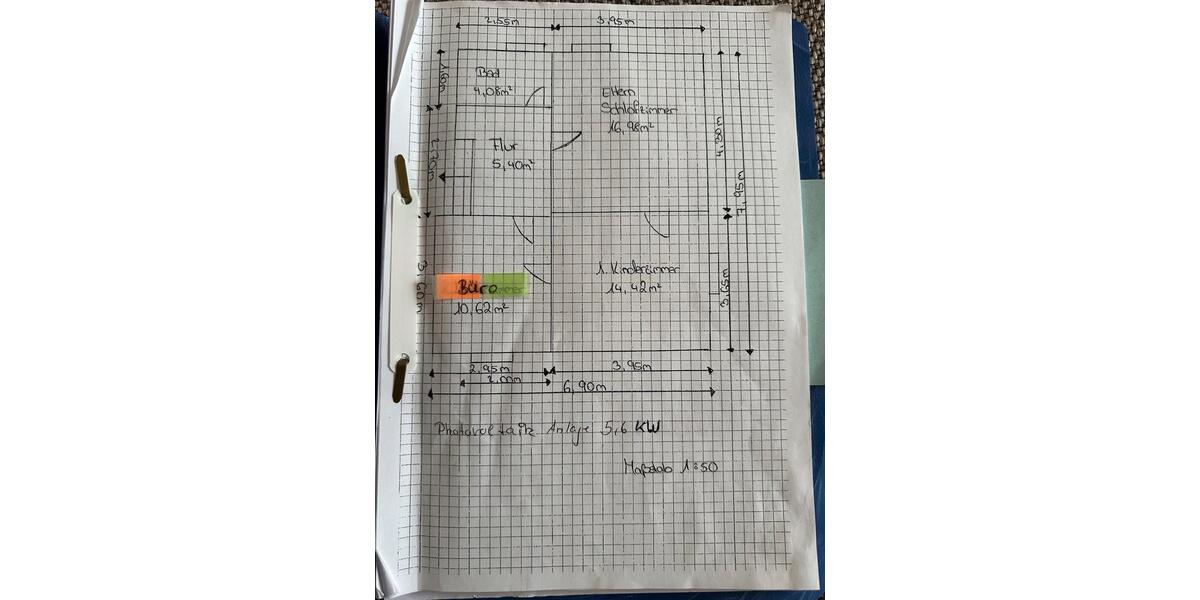 2,55m
3,95m
Bad
4,08m²
1,60m
Eltern
Schlafzimmer
16,98m²
4,30m
Flur
5,40m²
2,70m
7,95m
1. Kinderzimmer
14,42m²
3,65m
Büro
10,62m²
3,60m
2,95m
3,95m
2,00m
6,90m
Photovoltaik Anlage 5,6 KW
Maßstab 1:50